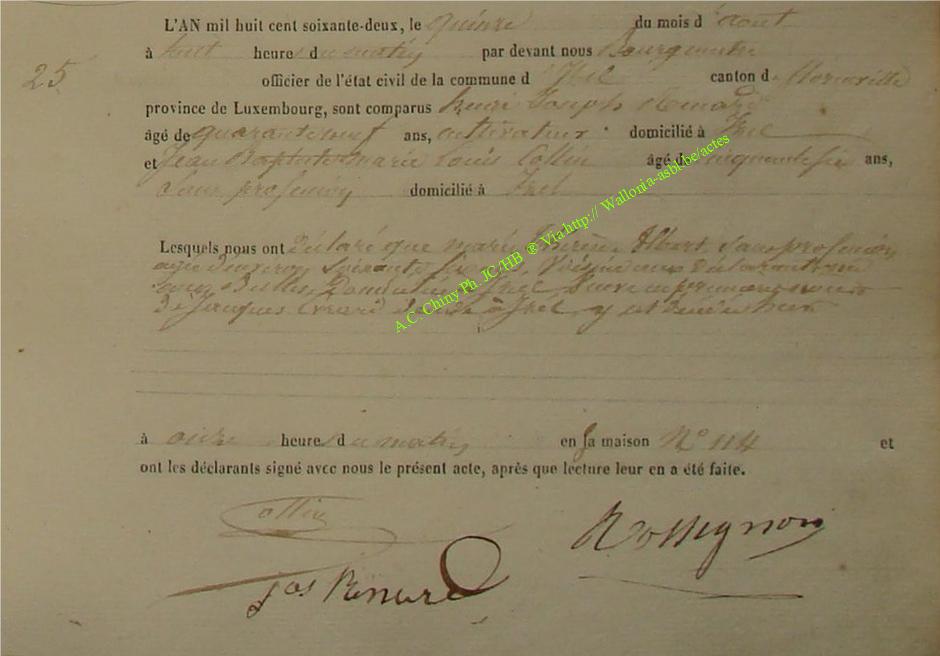 L'AN mil huit cent soixante-deux, le quinze du mois d'août
à huit heures du matin par devant nous Bourgmestre
25
officier de l'état civil de la commune d'Izel canton de Florenville
province de Luxembourg, sont comparus henri Joseph Renard
âgé de quarante neuf ans, cultivateur domicilié à Izel
et Jean Baptiste marie Louis Collin âgé de cinquante six ans,
Sans profession domicilié à Izel
Lesquels nous ont Déclaré que marie Albert, Sans profession
agée d'environ Soixante Voisine aux déclarants
Izel Veuve en premières noces
De Jacques Errard à Izel, y est décédée hier
à onze heures du matin en sa maison N° 114 et
ont les déclarants signé avec nous le présent acte, après que lecture leur en a été faite.
Collin
Rossignon
Jos Renard
A.C. Chiny Ph. JC/HB ® Via http:// Wallonia-asbl.be/actes